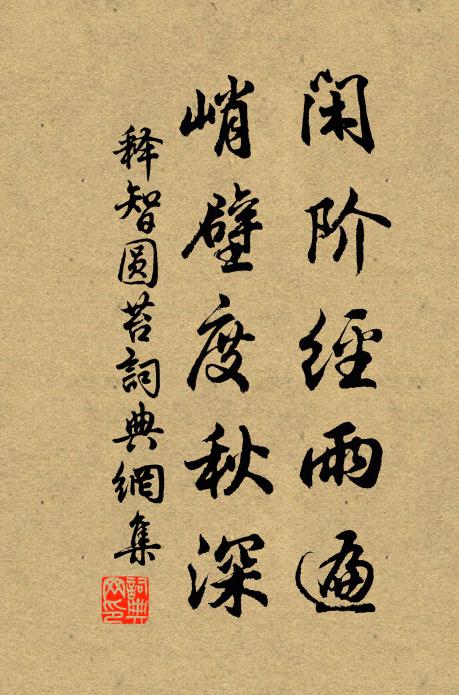 闲阶經雨遍
峭壁度秋深
释智圆苔詞典網集
詞典网印